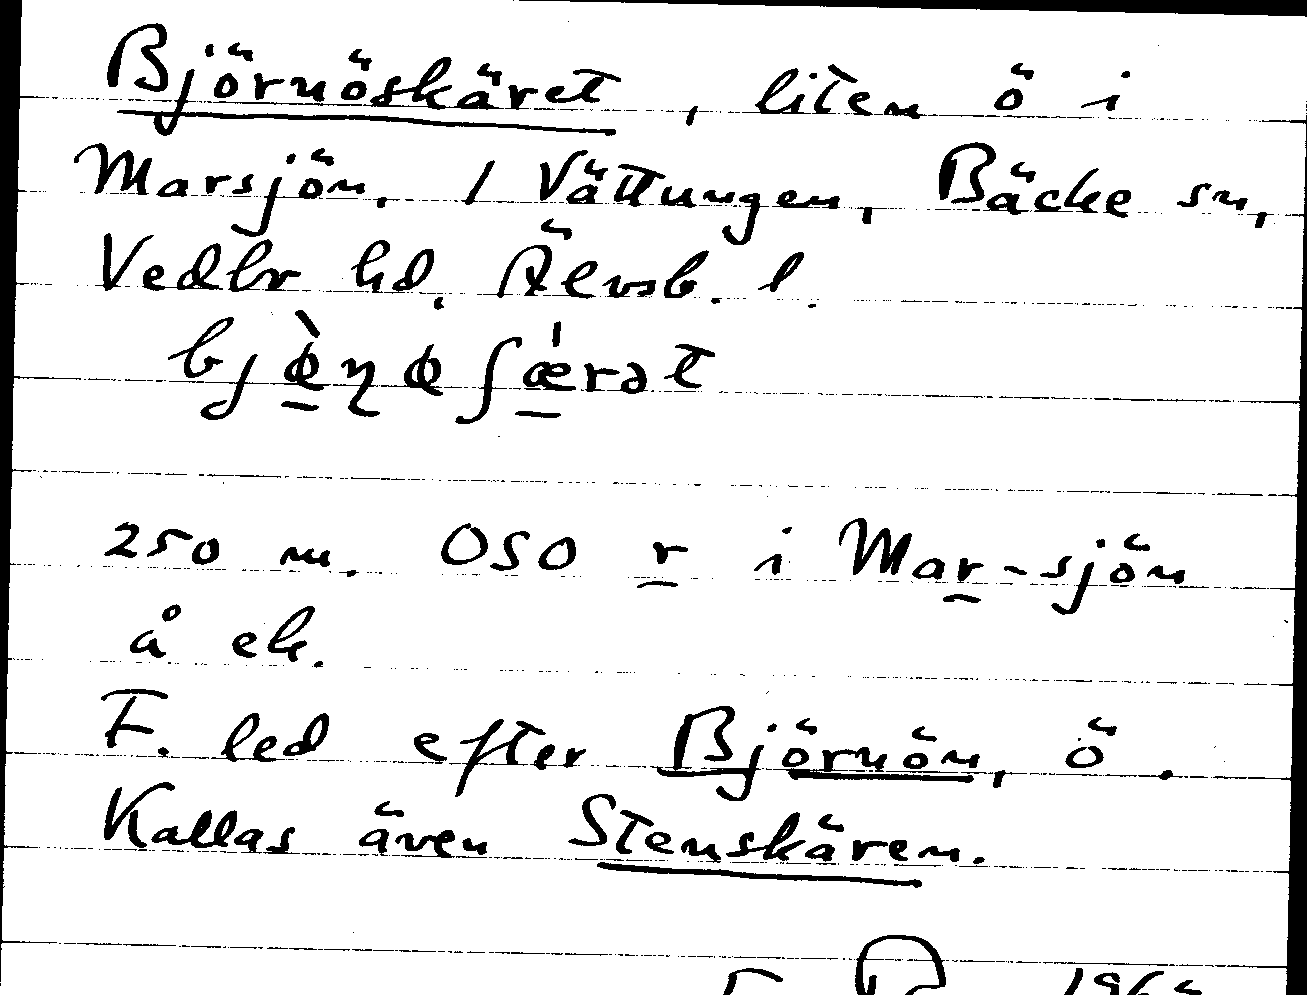 Björnöskäret, liten ö i
Marsjön. / Vättungen, Bäcke sn,
Vedbr hd. Älvsb. l.
bjø̀ɳøʃǽrət
250 m. OSO r i Mar-sjön
å ek.
F. led efter Björnön, ö.
Kallas även Stenskären.